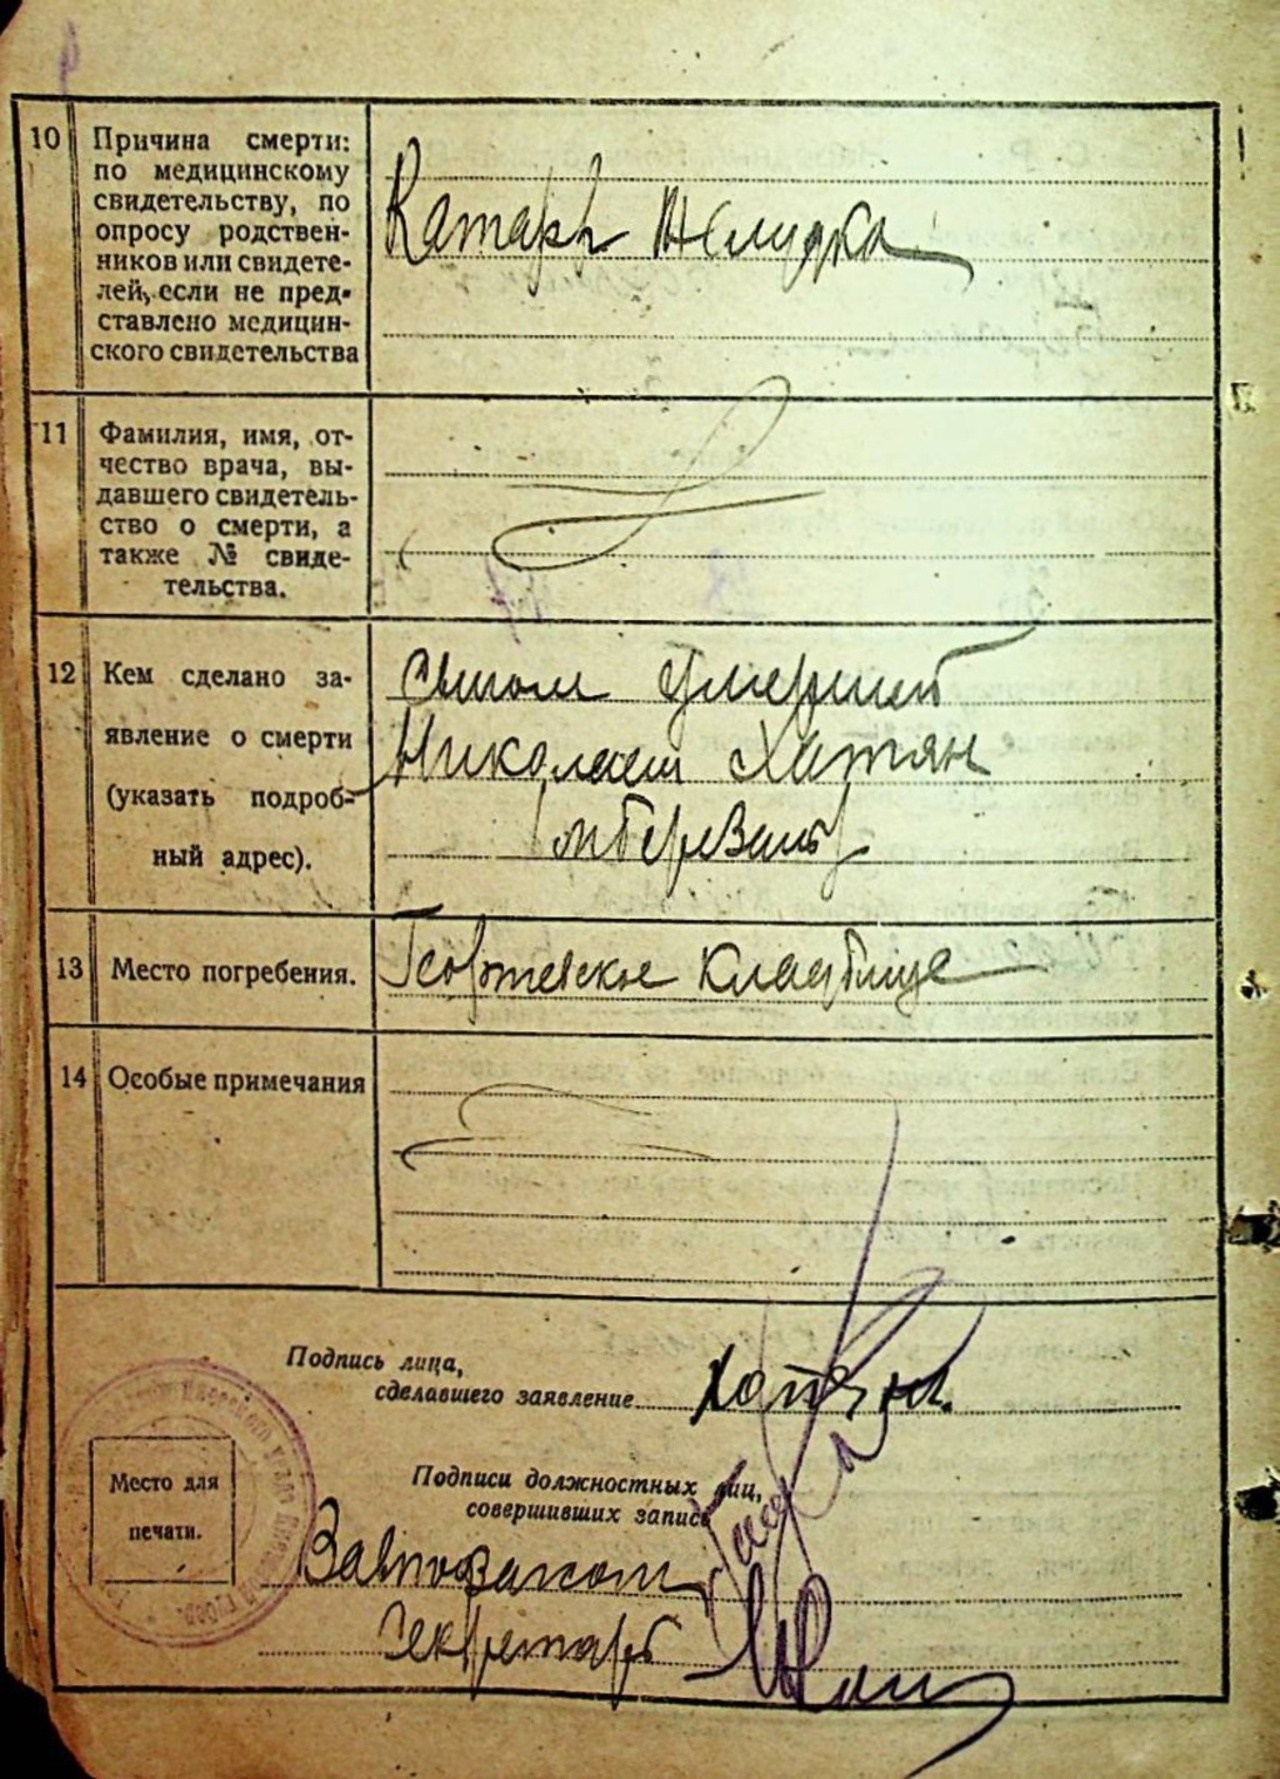 10 Причина смерти:
по медицинскому
свидетельству, по
опросу родствен-
ников или свидете-
лей, если не пред-
ставлено медицин-
ского свидетельства
Катарр желудка
11 Фамилия, имя, от-
чество врача, вы-
давшего свидетель-
ство о смерти, а
также № свиде-
тельства.
12 Кем сделано за-
явление о смерти
(указать подроб-
ный адрес).
Сыном умершей
Николаем Хатян
13 Место погребения.
Георгиевское кладбище
14 Особые примечания
Подпись лица,
сделавшего заявление
Хатян.
Место для
печати.
Подписи должностных лиц,
совершивших запись
Секретарь